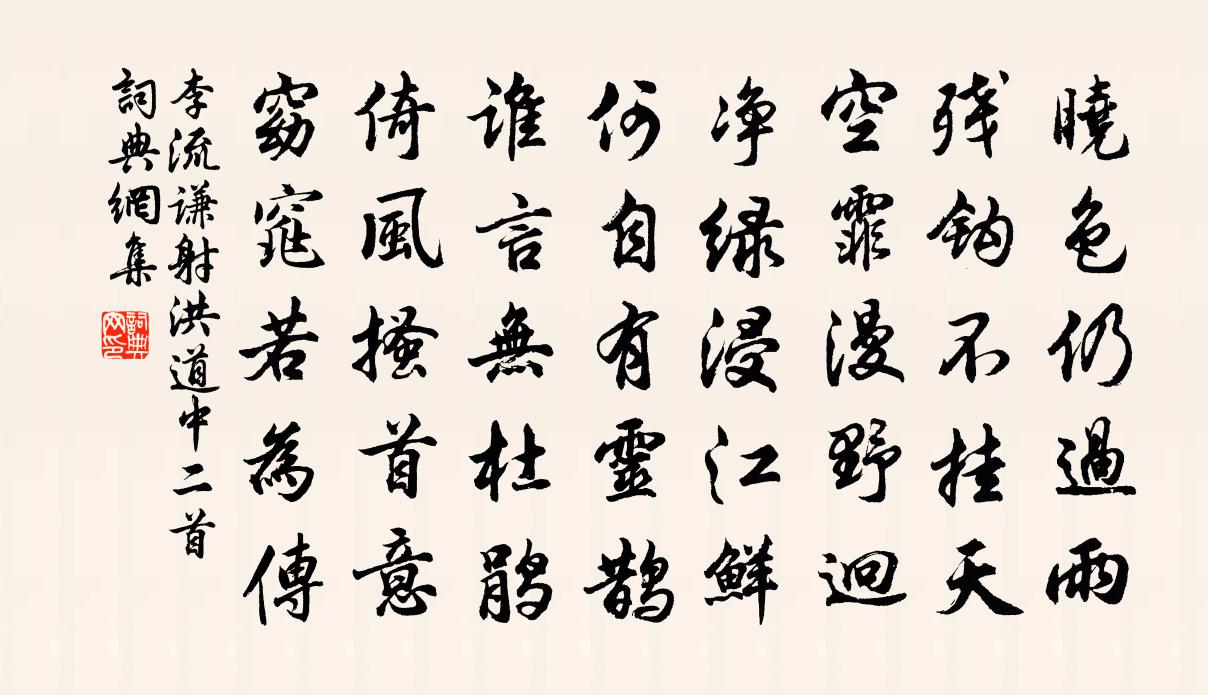 曉色仍過雨
殘鈎不挂天
空霏漫野迥
净绿浸江鮮
何自有靈鵲
谁言無杜鹃
倚風搔首意
窈窕若為傳
李流谦射洪道中二首
詞典網集
詞典网印